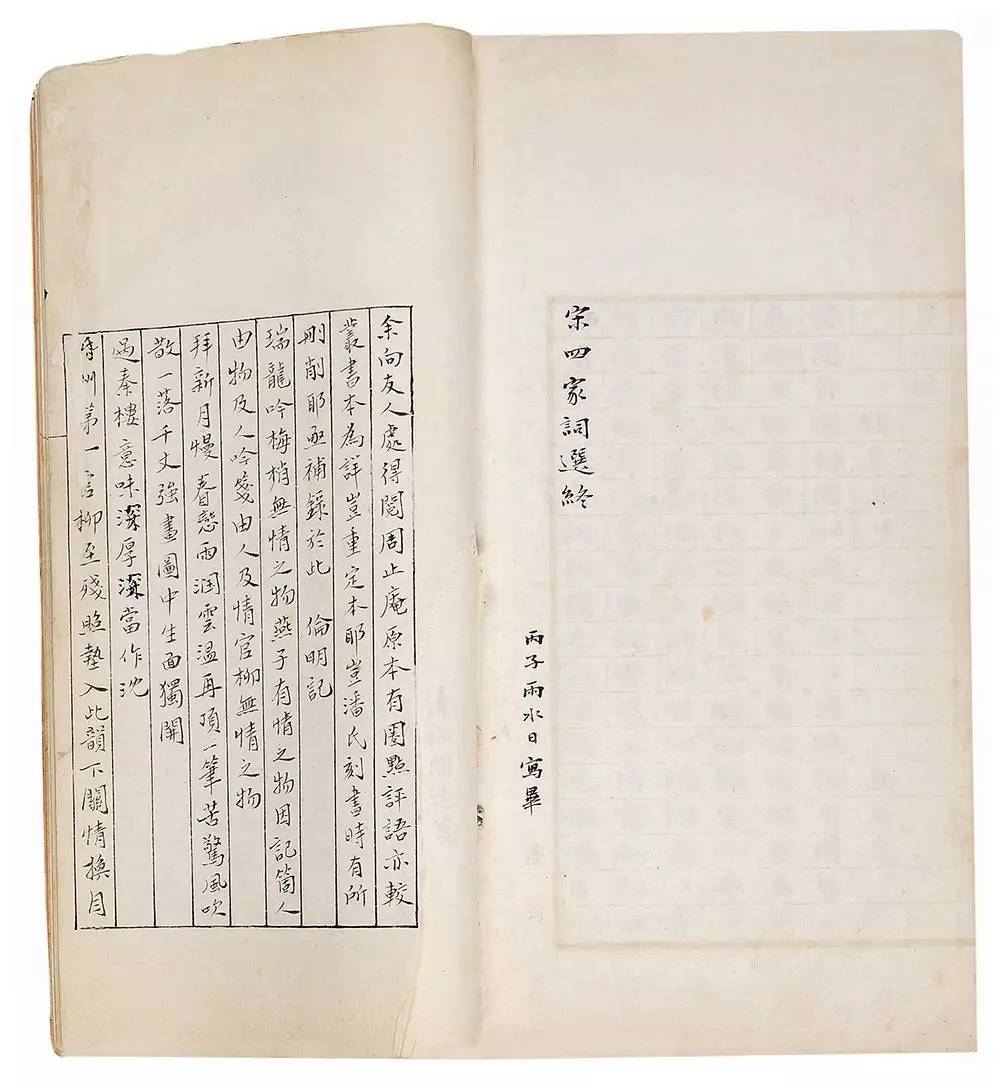 宋四家詞選終
丙子雨水日寫畢
余向友人處得閱周止庵原本有圈點評語亦較
叢書本為詳豈重定本耶豈潘氏刻書時有所
刪削耶亟補錄於此 倫明記
瑞龍吟梅梢無情之物燕子有情之物因記箇人
由物及人吟箋由人及情官柳無情之物
拜新月慢春戀雨潤雲温再頂一筆苦驚風吹
散一落千丈強畫圖中生面獨開
過秦樓意味深厚深當作沈
第一言柳至殘照墊入此韻下關情換月